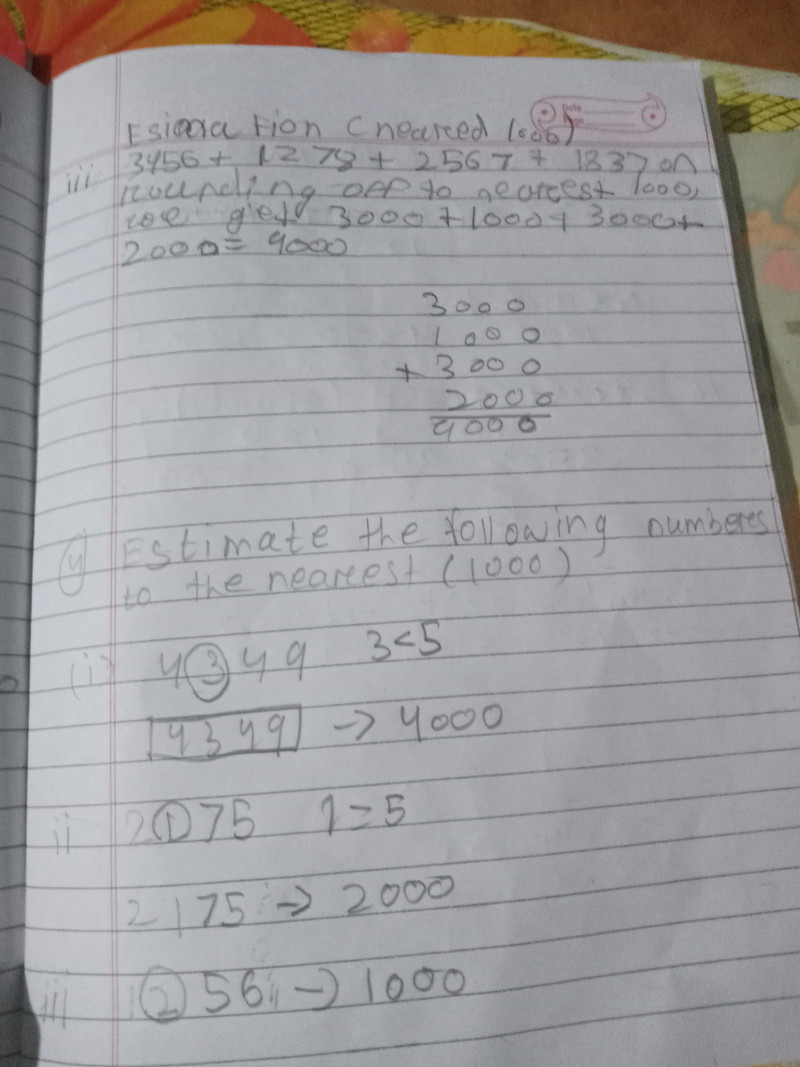 Esiama Fion (neared 1000)
iii 3456 + 1278 + 2567 + 1837 on
rounding OFF to nearest 1000,
we get 3000 + 1000 + 3000 +
2000 = 9000
3000
1000
+ 3000
2000
9000
4 Estimate the following numberes
to the nearest (1000)
(i) 4349 3<5
4349 → 4000
ii 2175 1=5
2175 → 2000
iii 1256 → 1000